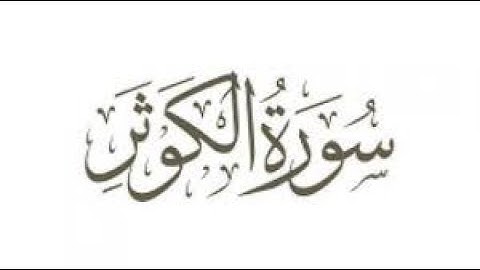 سُورَةُ الكَوثَرِ